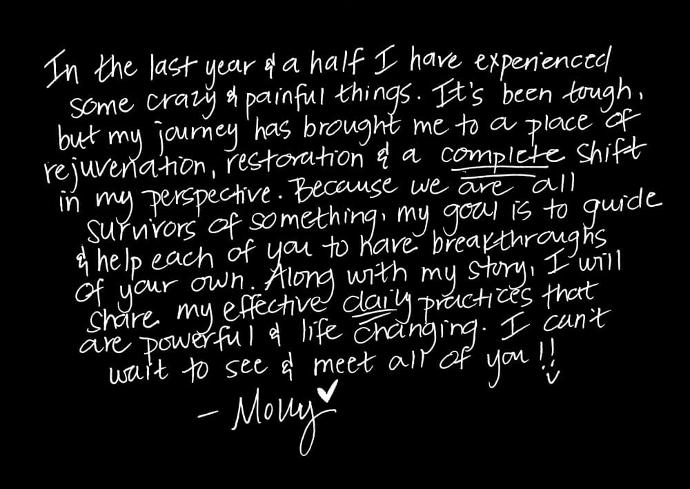 In the last year & a half I have experienced
some crazy & painful things. It's been tough,
but my journey has brought me to a place of
rejuvenation, restoration & a complete shift
in my perspective. Because we are all
survivors of something, my goal is to guide
& help each of you to have breakthroughs
of your own. Along with my story, I will
share my effective daily practices that
are powerful & life changing. I can't
wait to see & meet all of you!!
- Molly